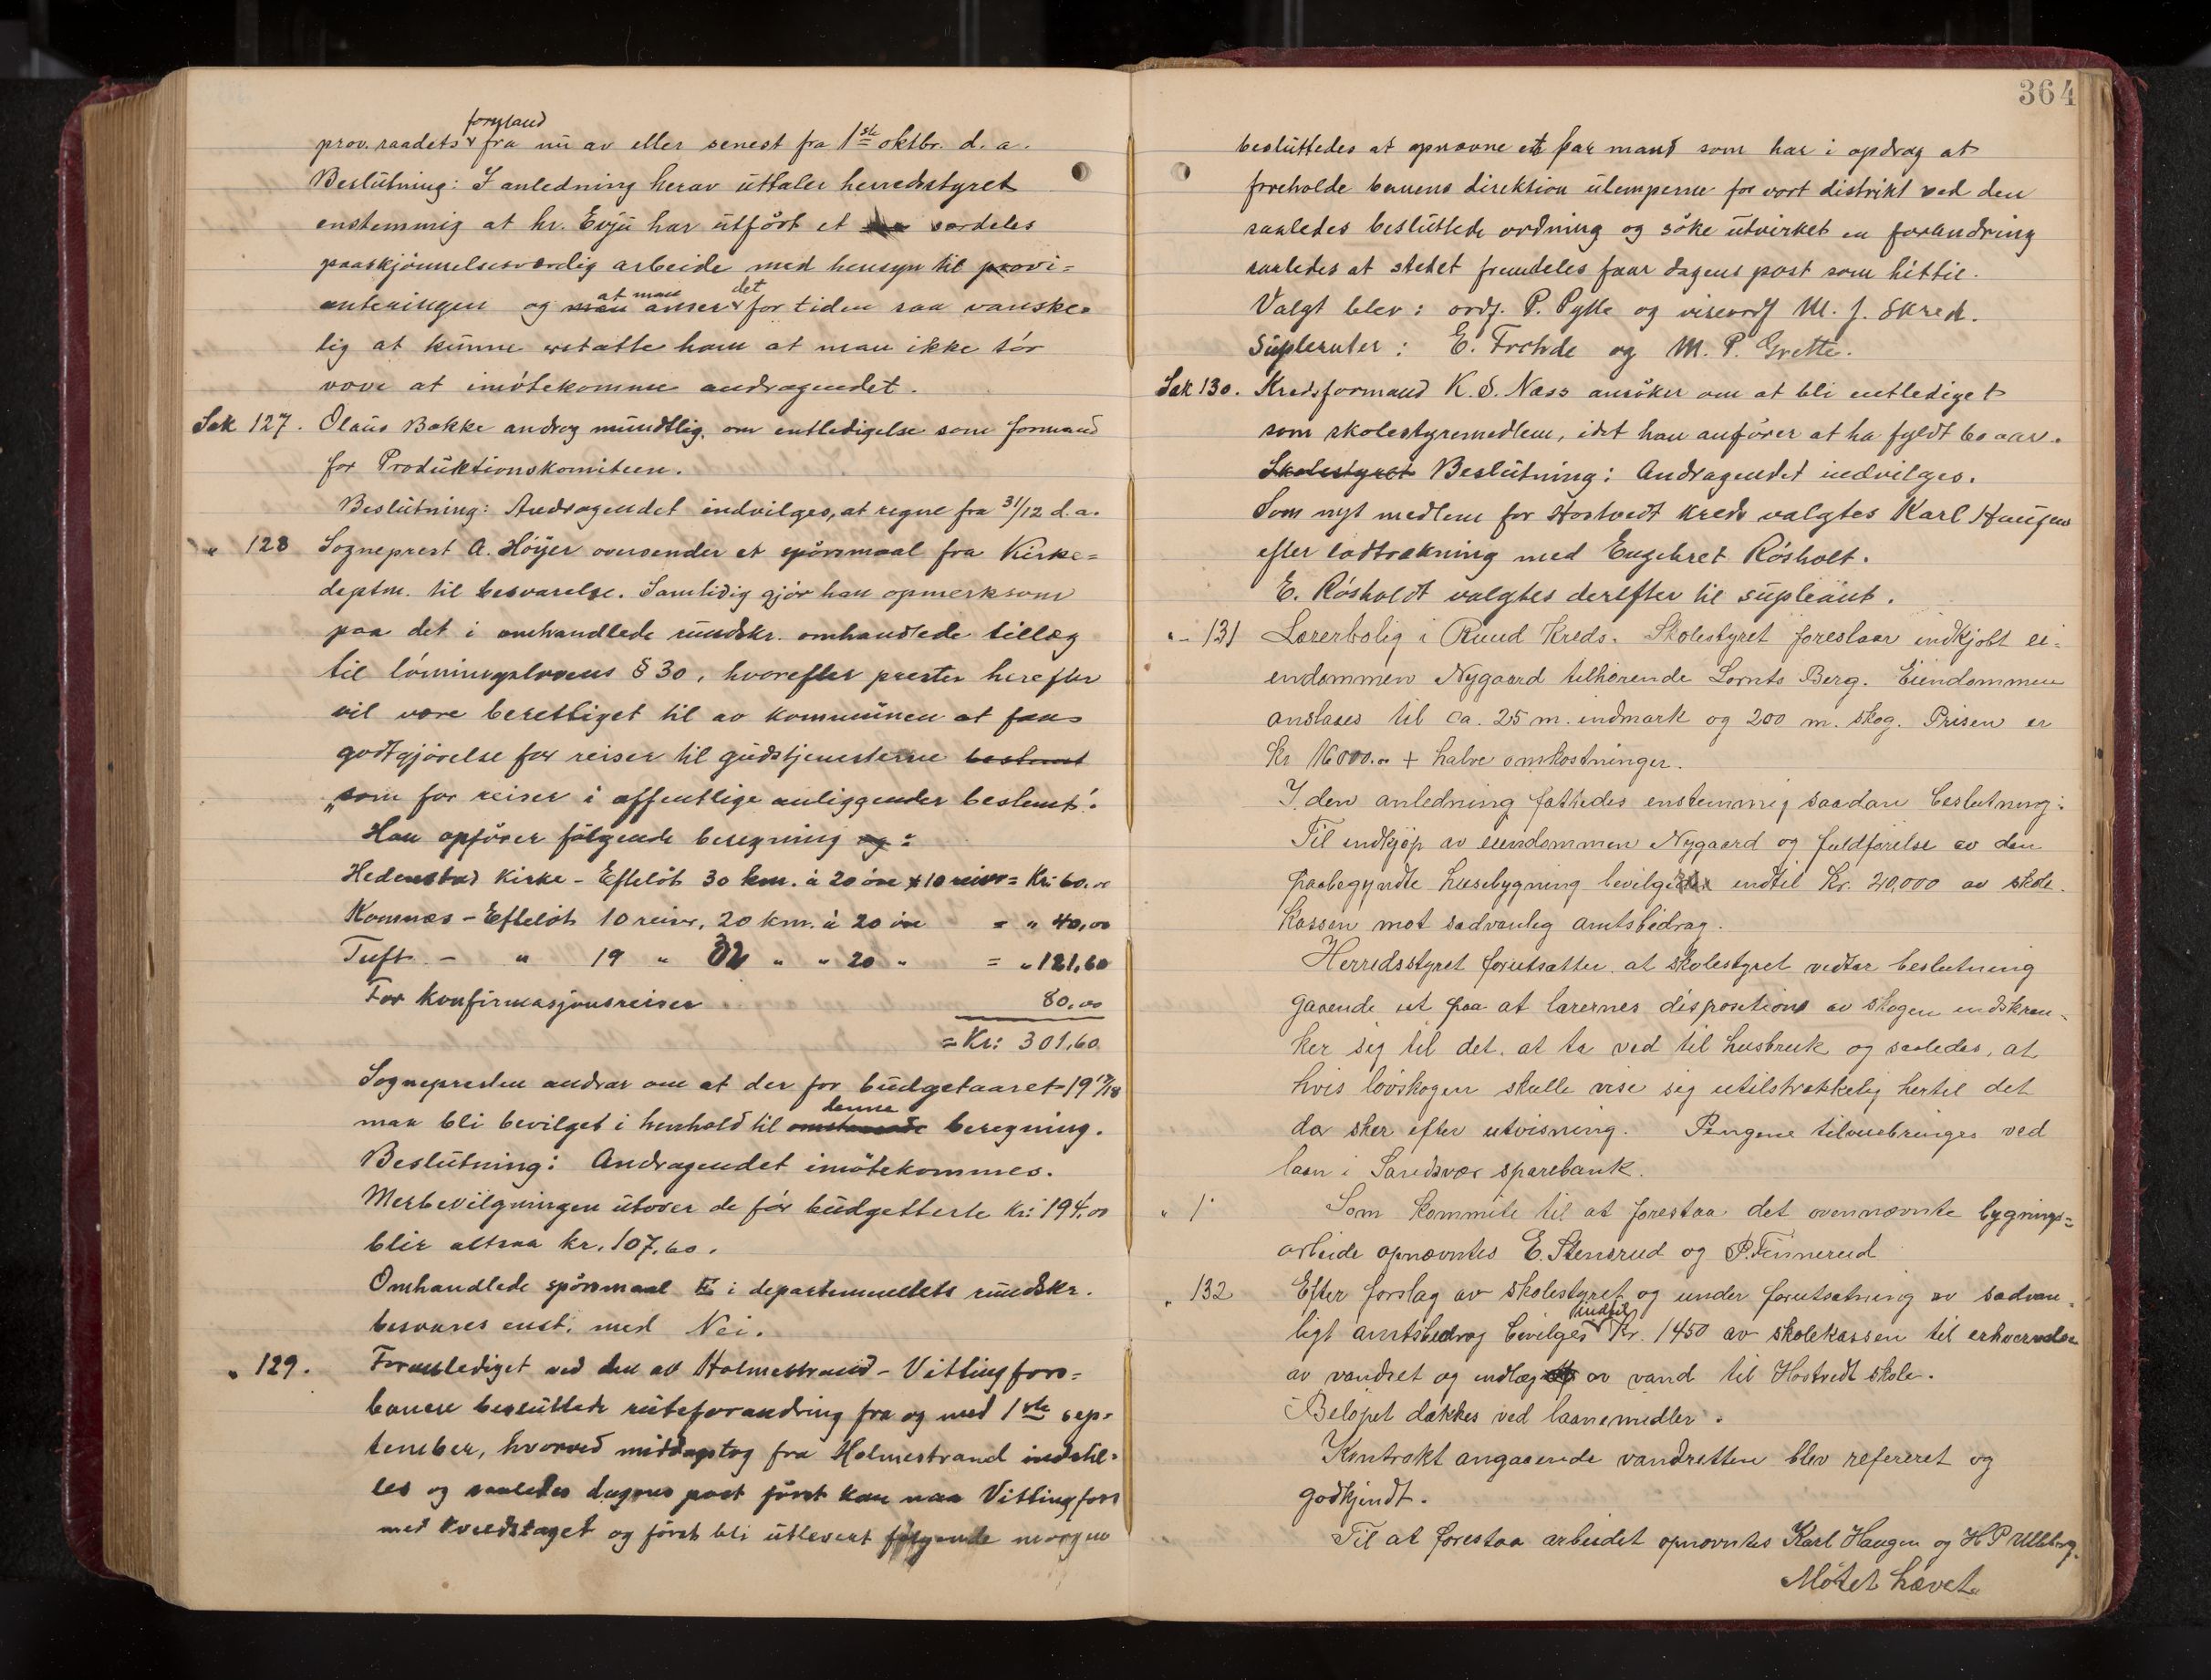 364
formand
prov. raadets fra nu av eller senest fra 1ste oktbr. d. a.
Beslutning: I anledning herav uttaler herredsstyret
enstemmig at hr. Evju har utført et særdeles
paaskjønnelsesværdig arbeide med hensyn til provi=
at man det
anteringen og man anser for tiden saa vanske=
lig at kunne erstatte ham at man ikke tør
vove at imøtekomme andragendet.
Sak 127. Olaus Bakke androg mundtlig om entledigelse som formand
for Produktionskomiteen.
Beslutning: Andragendet indvilges, at regne fra 31/12 d.a.
" 128 Sogneprest A. Höyer oversender et spörsmaal fra Kirke=
deptm. til besvarelse. Samtidig gjör han opmerksom
paa det i omhandlede rundskr. omhandlede tillæg
til lönningslovens § 30, hvorefter prester herefter
vil være berettiget til av kommunen at faa
godtgjörelse for reiser til gudstjenesterne bestemt
"som for reiser i offentlige anliggender bestemt".
Han opförer fölgende beregning og:
Hedenstad Kirke - Efteløt 30 km. à 20 öre x 10 reiser = Kr: 60.00
Komnæs - Efteløt 10 reiser, 20 km. à 20 öre = " 40,00
Tuft - " 19 " 32 " " 20 " = " 121,60
For konfirmasjonsreiser 80.00
= Kr: 301,60
Sognepresten andrar om at der for budgetaaret 1917/18
denne
maa bli bevilget i henhold til omstaaende beregning.
Beslutning: Andragendet imötekommes.
Merbevilgningen utover de för budgetterte kr: 194,00
blir altsaa kr. 107,60.
Omhandlede spörsmaal E i departementets rundskr.
besvares enst. med Nei.
" 129. Foranlediget ved den av Holmestrand - Vittingfoss=
banen besluttede ruteforandring fra og med 1ste sep=
tember, hvorved middagstog fra Holmestrand indstil=
les og saaledes dagens post först kan naa Vittingfoss
med kveldstoget og först bli utlevert følgende morgen
besluttedes at opnævne et par mand som har i opdrag at
foreholde banens direktion ulemperne for vort distrikt ved den
saaledes besluttede ordning og söke utvirket en forandring
saaledes at stedet fremdeles faar dagens post som hittil.
Valgt blev: ordf. P. Pytte og viseordf M. J. Skred.
Supleanter: E. Frohde og M. P. Grette.
Sak 130. Kredsformand K. S. Næss ansöker om at bli entlediget
som skolestyremedlem, idet han anförer at ha fyldt 60 aar.
Skolestyret Beslutning: Andragendet indvilges.
Som nyt medlem for Hostvedt kreds valgtes Karl Haugen
efter lodtrækning med Engebret Rösholt.
E. Rösholdt valgtes derefter til supleant.
" 131 Lærerbolig i Ruud Kreds. Skolestyret foreslaar indkjøbt ei=
endommen Nygaard tilhørende Lornts Berg. Eiendommen
anslaaes til ca. 25 m. indmark og 200 m. skog. Prisen er
kr 16000.00 + halve omkostninger.
I den anledning fattedes enstemmig saadan beslutning:
Til indkjøp av eiendommen Nygaard og fuldførelse av den
paabegyndte husebygning bevilges indtil kr. 20,000 av skole=
kassen mot sædvanlig amtsbidrag.
Herredsstyret forutsætter at skolestyret vedtar beslutning
gaaende ut paa at lærernes disposition av skogen indskræn=
ker sig til det at ta ved til husbruk og saaledes, at
hvis løvskogen skulle vise sig utilstrækkelig hertil det
da sker efter utvisning. Pengene tilveiebringes ved
laan i Sandsvær sparebank.
" 1. Som kommite til at forestaa det ovennævnte bygnings=
arbeide opnævntes E. Stensrud og P. Finnerud
" 132 Efter forslag av skolestyret og under forutsætning av sædvan=
indtil
ligt amtsbidrag bevilges kr. 1450 av skolekassen til erhvervelse
av vandret og indlæg av vand til Hostvedt skole.
Beløpet dækkes ved laanemidler.
Kontrakt angaaende vandretten blev refereret og
godkjendt.
Til at forestaa arbeidet opnævntes Karl Haugen og H P Ulleberg.
Møtet hævet